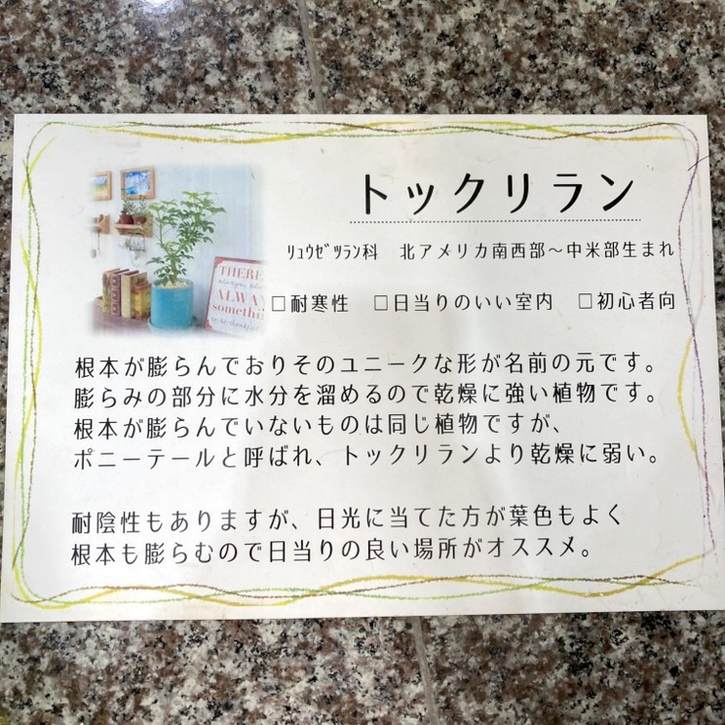 トックリラン
ﾘｭｳｾﾞﾂﾗﾝ科 北アメリカ南西部～中米部生まれ
□耐寒性 □日当りのいい室内 □初心者向
THERE
ALWA
somethin
根本が膨らんでおりそのユニークな形が名前の元です。
膨らみの部分に水分を溜めるので乾燥に強い植物です。
根本が膨らんでいないものは同じ植物ですが、
ポニーテールと呼ばれ、トックリランより乾燥に弱い。
耐陰性もありますが、日光に当てた方が葉色もよく
根本も膨らむので日当りの良い場所がオススメ。